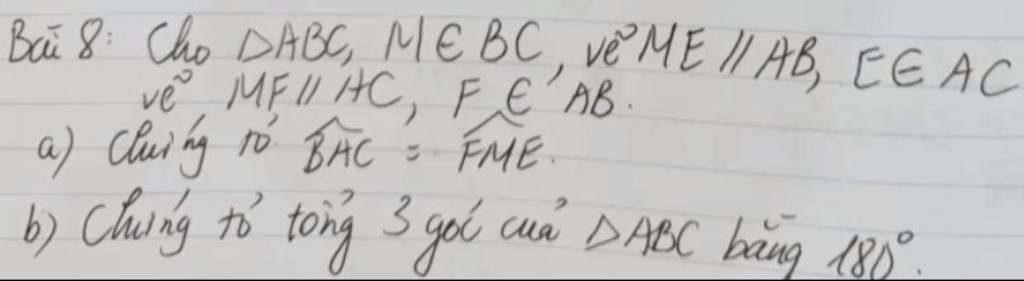 Bài 8: Cho ΔABC, M ∈ BC, vẽ ME // AB, E ∈ AC
vẽ MF // AC, F ∈ AB.
a) Chứng tỏ \widehat{BAC} = \widehat{FME}.
b) Chứng tỏ tổng 3 góc của ΔABC bằng 180°.